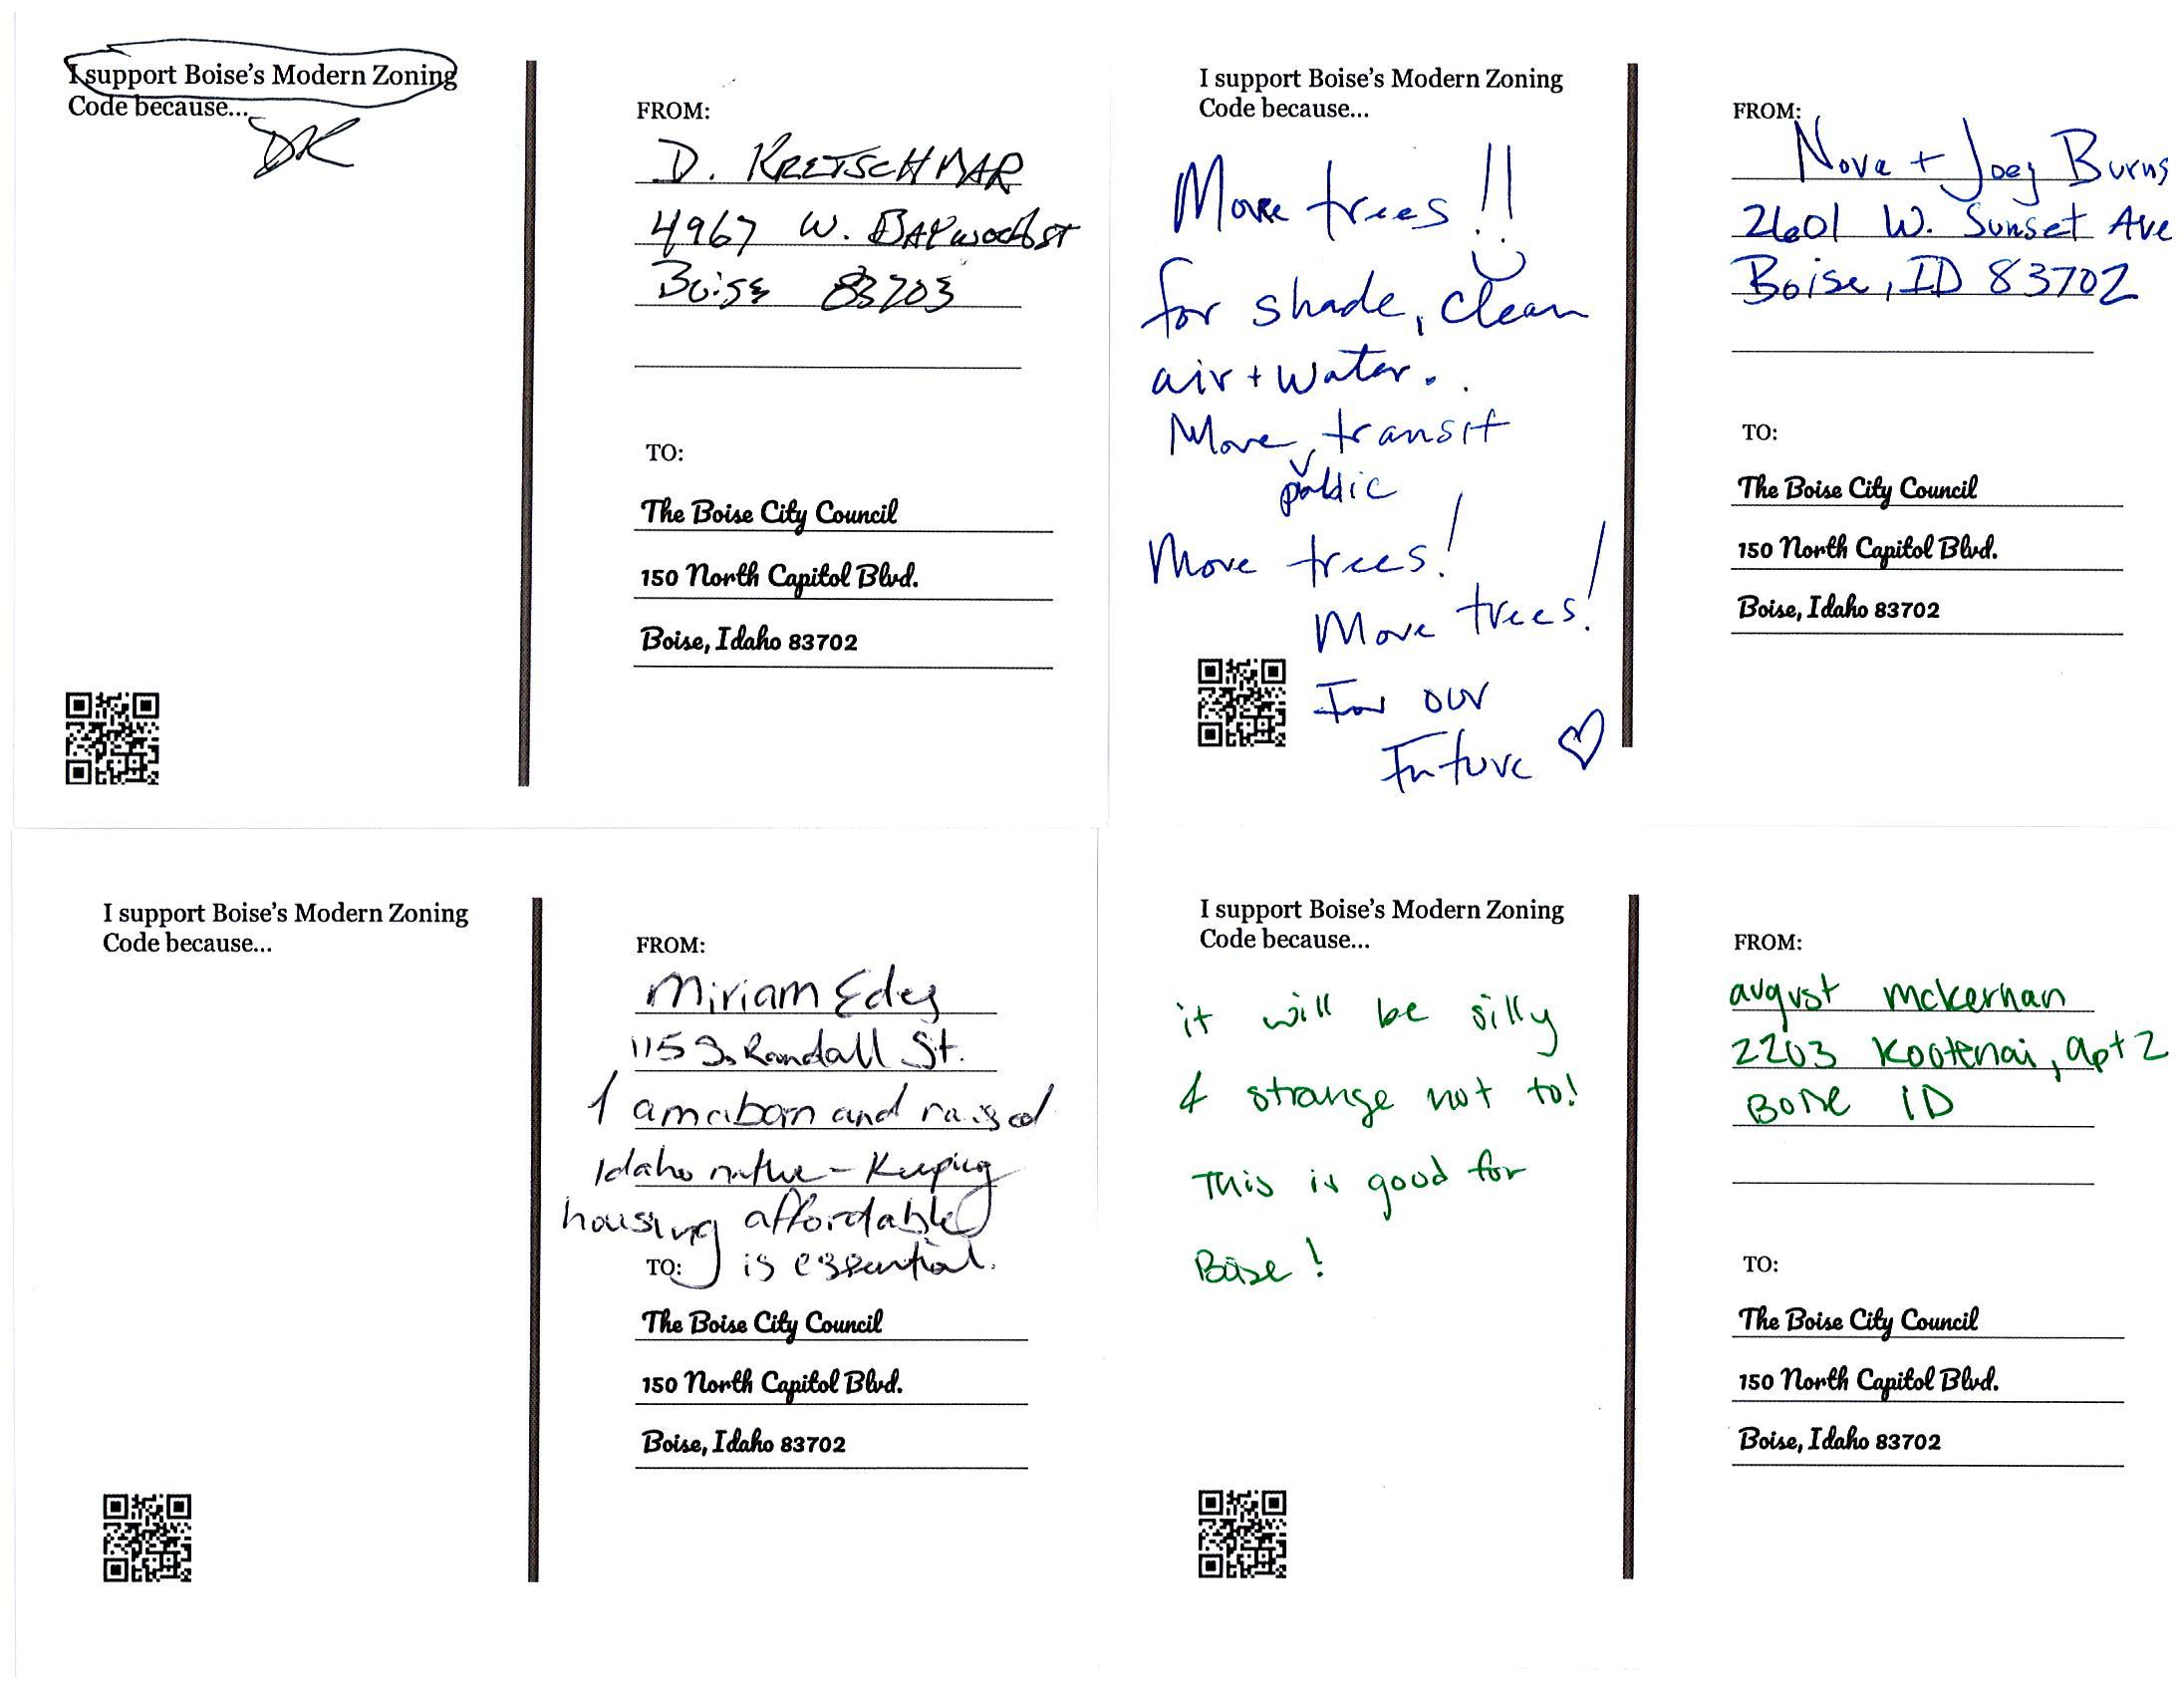 I support Boise's Modern Zoning
Code because...
DK
FROM:
D. KRETSCHMAR
4967 W.
Boise 83703
TO:
The Boise City Council
150 North Capitol Blvd.
Boise, Idaho 83702
I support Boise's Modern Zoning
Code because...
More trees!!
for shade, clean
air + water.
More transit
public
More trees!
More trees!
For our
Future
FROM:
Nova + Joey Burns
2601 W. Sunset Ave
Boise, ID 83702
TO:
The Boise City Council
150 North Capitol Blvd.
Boise, Idaho 83702
I support Boise's Modern Zoning
Code because...
FROM:
Miriam Edey
115 S. Randall St.
I am a born and raised
Idaho native - Keeping
housing affordable
is essential.
TO:
The Boise City Council
150 North Capitol Blvd.
Boise, Idaho 83702
I support Boise's Modern Zoning
Code because...
it will be silly
& strange not to!
This is good for
Boise!
FROM:
august mckernan
2203 Kootenai, apt 2
Boise ID
TO:
The Boise City Council
150 North Capitol Blvd.
Boise, Idaho 83702